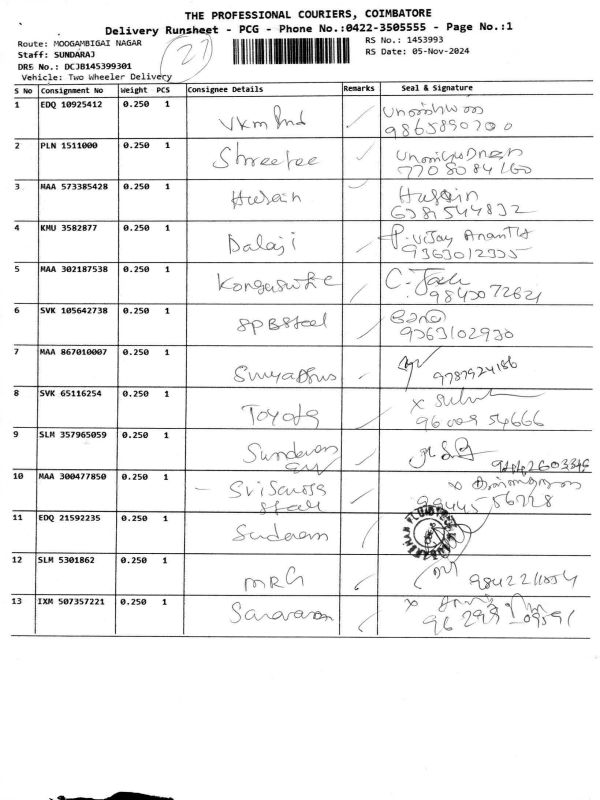 THE PROFESSIONAL COURIERS, COIMBATORE
Delivery Runsheet - PCG - Phone No.:0422-3505555 - Page No.:1
Route: MOOGAMBIGAI NAGAR
RS No.: 1453993
Staff: SUNDARAJ
RS Date: 05-Nov-2024
DRS No.: DCJB145399301
Vehicle: Two Wheeler Delivery
27
S No Consignment No Weight PCS Consignee Details Remarks Seal & Signature
1 EDQ 10925412 0.250 1
9865890700
2 PLN 1511000 0.250 1 Shreetee
7708084160
3 MAA 573385428 0.250 1 Husain Husain
6381544832
4 KMU 3582877 0.250 1 Balaji P. Vijay Ananth
9363012335
5 MAA 302187538 0.250 1
9843072621
6 SVK 105642738 0.250 1 SPB Steel
9363102930
7 MAA 867010007 0.250 1
9787924186
8 SVK 65116254 0.250 1 Toyota
96009 54666
9 SLM 357965059 0.250 1 Sundaram
10 MAA 300477850 0.250 1
99445 56728
11 EDQ 21592235 0.250 1
12 SLM 5301862 0.250 1 MRG
13 IXM 507357221 0.250 1 Saravanan